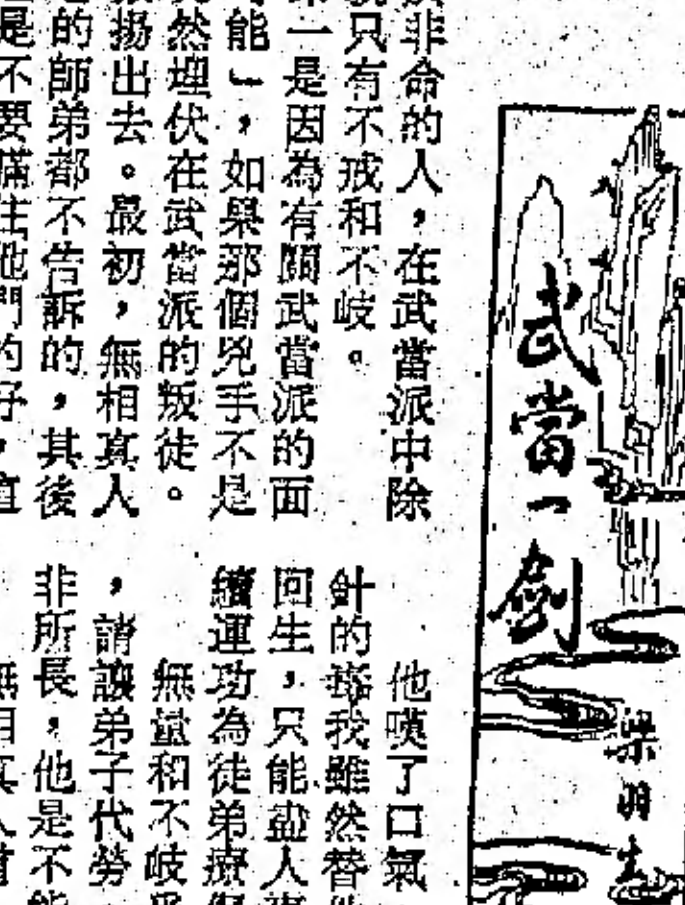 武當一劍
梁羽生
非命的人，在武當派中除
只有不戒和不岐。
一是因為有關武當派的面
能」，如果那個兇手不是
然埋伏在武當派的叛徒。
揚出去。最初，無相真人
的師弟都不告訴的，其後
是不要瞞住他們的好，直
他嘆了口氣
針的 我雖然替
回生，只能盡人事
續運功為徒弟療傷
無量和不岐
，請讓弟子代勞
非所長，他是不能
無相真人